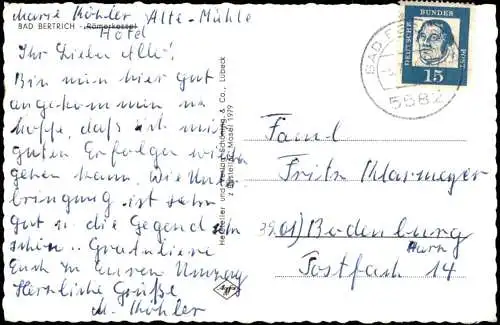 Marie Köhler Alte-Mühle
BAD BERTRICH - Römerkessel
Hotel
Ihr Lieben Alle!
Bin nun hier gut
angekommen
hoffe, daß ich mit
guten Erfolge wieder
gehen kann. Die Unter-
bringung ist sehr
gut u. die Gegend sehr
schön. Gratuliere
Euch zu Euren Umzug
Herzliche Grüße
M. Köhler
Hersteller und Verlag Schöning & Co., Lübeck
Mosel 1979
DEUTSCHE BUNDESPOST
15
BAD
5582
Faml
Fritz
3201) Bodenburg
Harz
Postfach 14